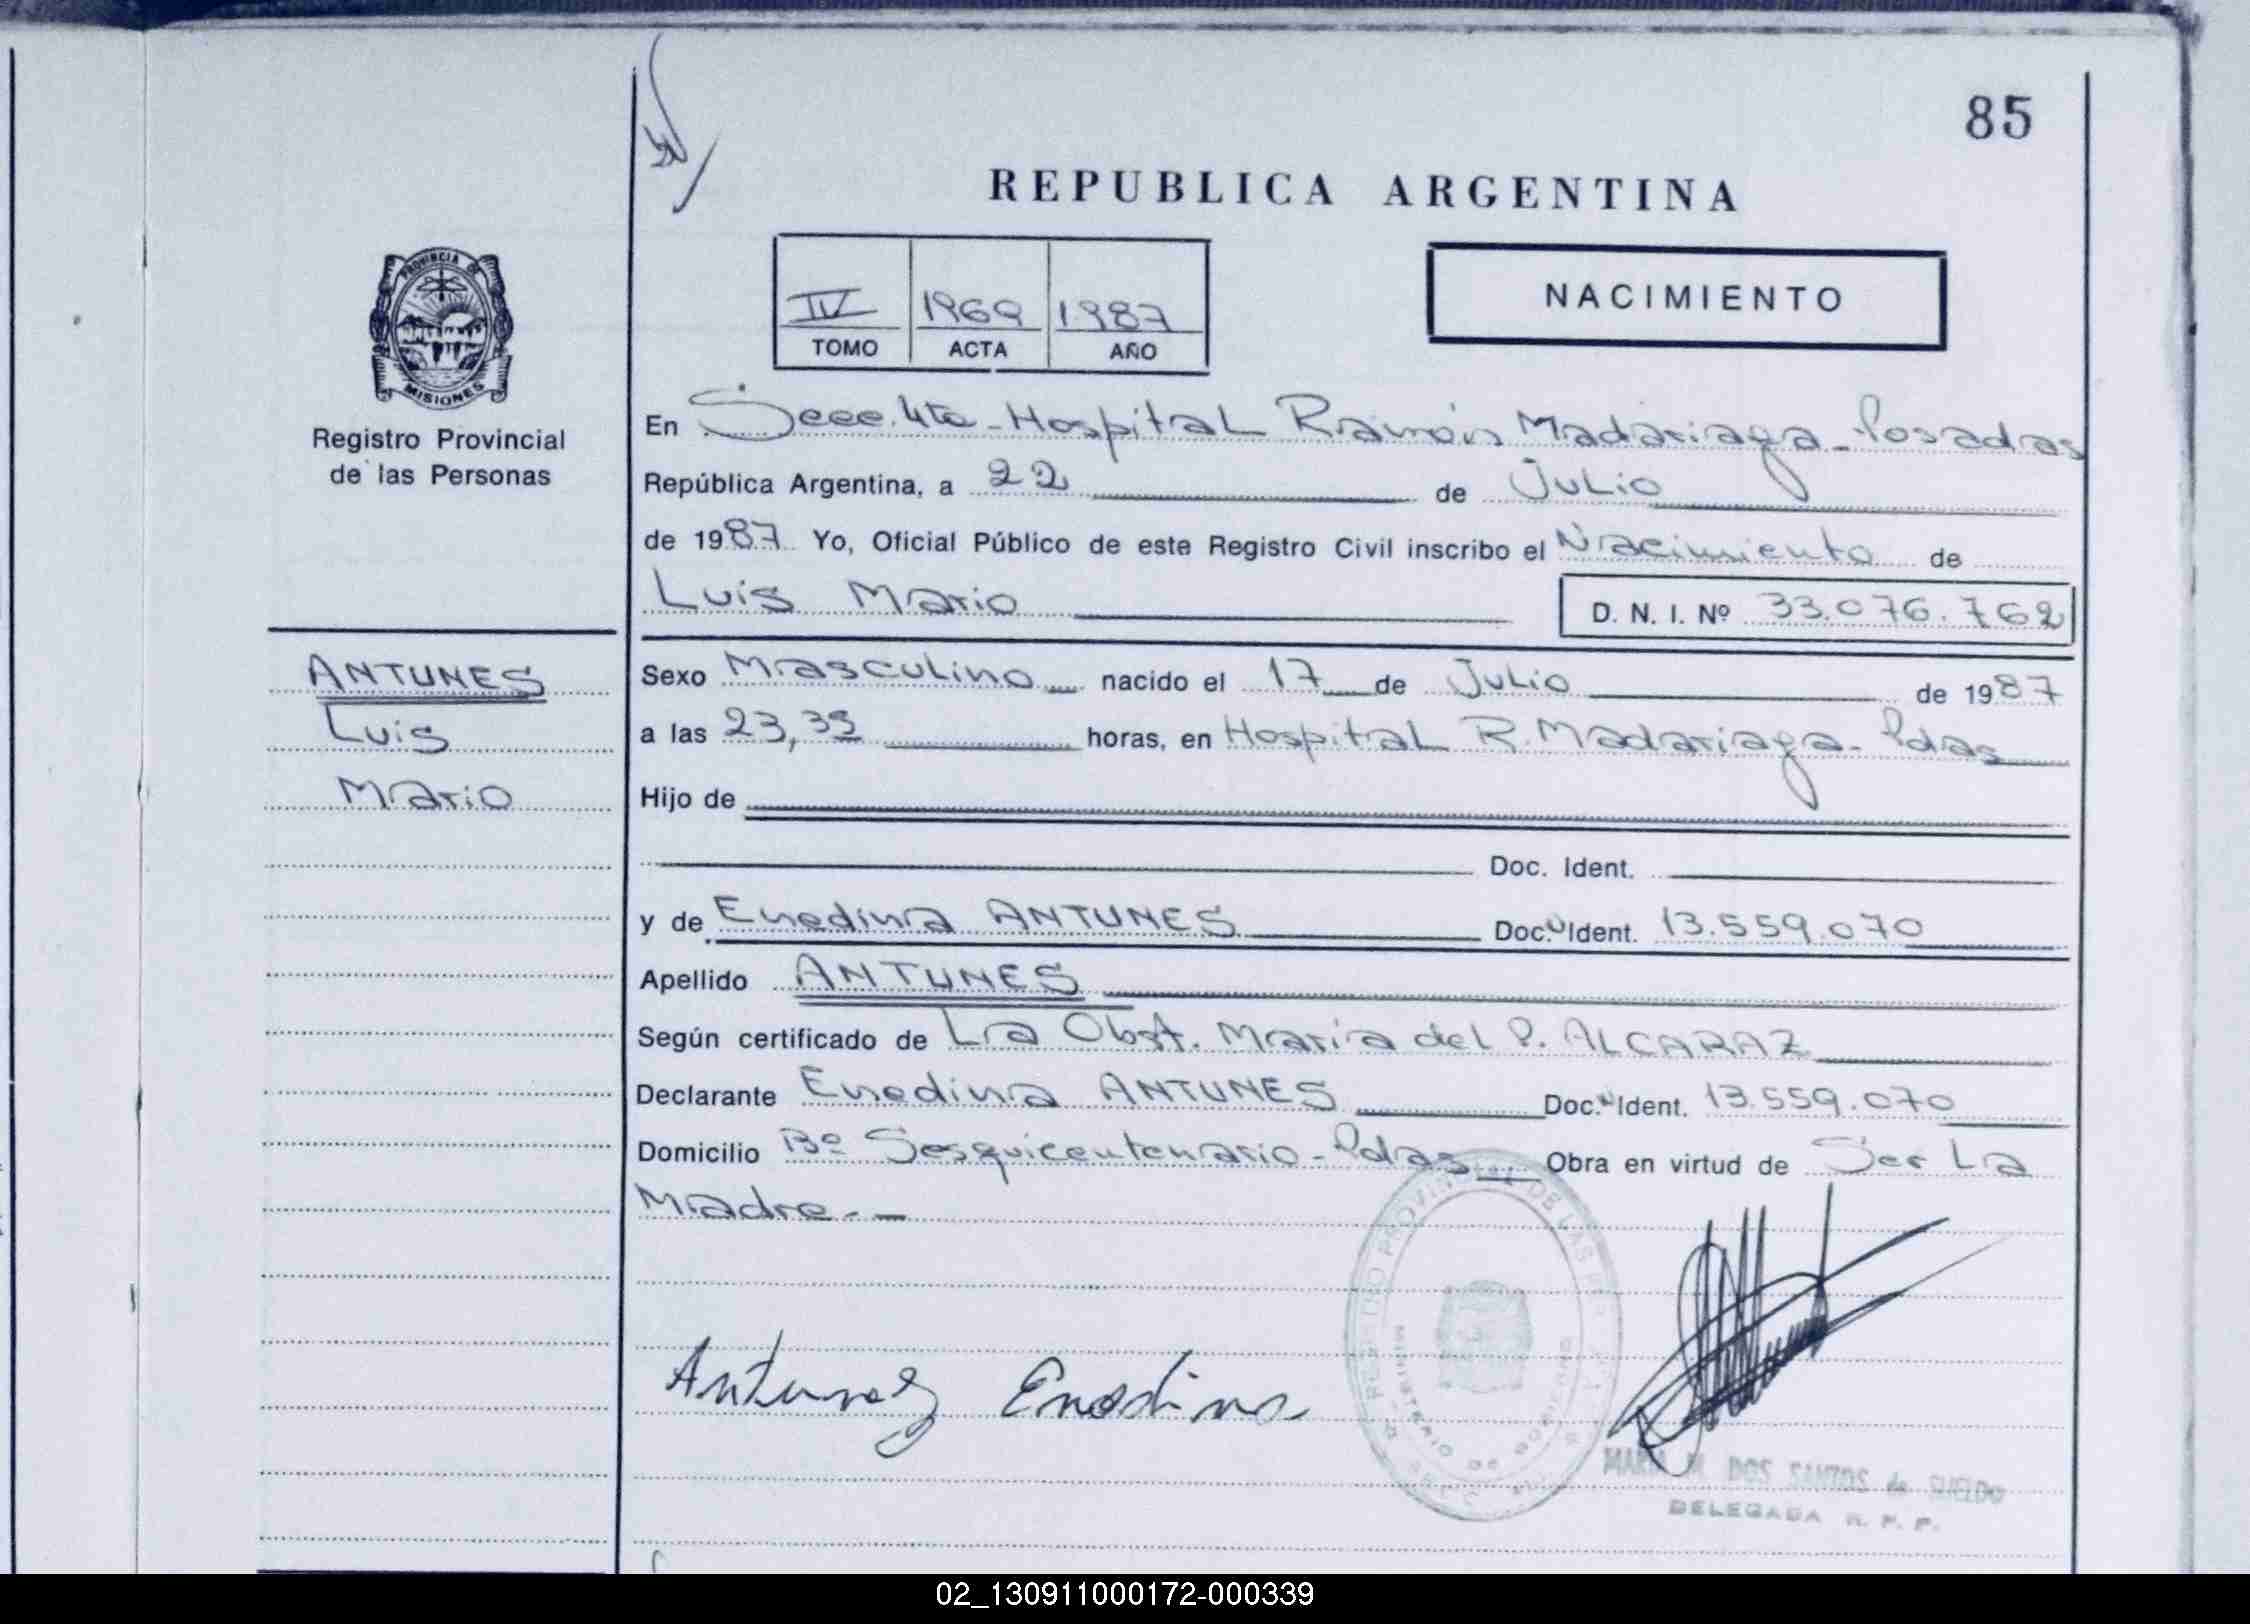 85
REPUBLICA ARGENTINA
IV 1969 1987
TOMO ACTA AÑO
NACIMIENTO
PROVINCIA DE
MISIONES
Registro Provincial
de las Personas
En Secc. 4ta - Hospital Ramón Madariaga - Posadas
República Argentina, a 22 de Julio
de 1987 Yo, Oficial Público de este Registro Civil inscribo el Nacimiento de
Luis Mario D. N. I. Nº 33.076.762
ANTUNES
Luis
Mario
Sexo Masculino nacido el 17 de Julio de 1987
a las 23,35 horas, en Hospital R. Madariaga - Pdas
Hijo de
Doc. Ident.
y de Enedina ANTUNES Doc. Ident. 13.559.070
Apellido ANTUNES
Según certificado de La Obst. María del P. ALCARAZ
Declarante Enedina ANTUNES Doc. Ident. 13.559.070
Domicilio Bº Sesquicentenario - Pdas Obra en virtud de Ser La
Madre.-
REGISTRO PROVINCIAL DE LAS
MINISTERIO DE GOBIERNO
Antunes Enedina
MARIA M. DOS SANTOS de SUELDO
DELEGADA R. P. P.
02_130911000172-000339